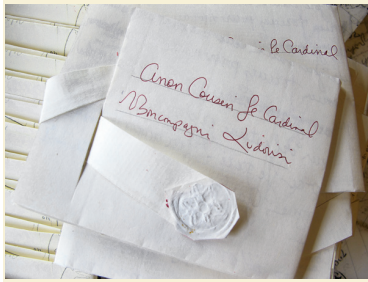 le Cardinal
a mon Cousin Le Cardinal
Boncompagni Ludovisi